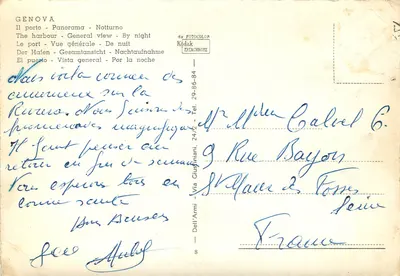 GENOVA
Il porto - Panorama - Notturno
The harbour - General view - By night
Le port - Vue générale - De nuit
Der Hafen - Gesamtansicht - Nachtaufnahme
El puerto - Vista general - Por la noche
Kodak
EKTACHROME
Dell'Armi - Via Giustiniani, 24/2 - Tel. 29-86-84
Nous voila comme des
amoureux sur la
Nous faisons des
promenades magnifiques
Il faut penser au
retour en fin de semaine
Nous espérons tous en
bonne santé
Bons Baisers
Mr Mme Calvel C.
9 Rue Bayon
St Maur des Fossés
Seine
France